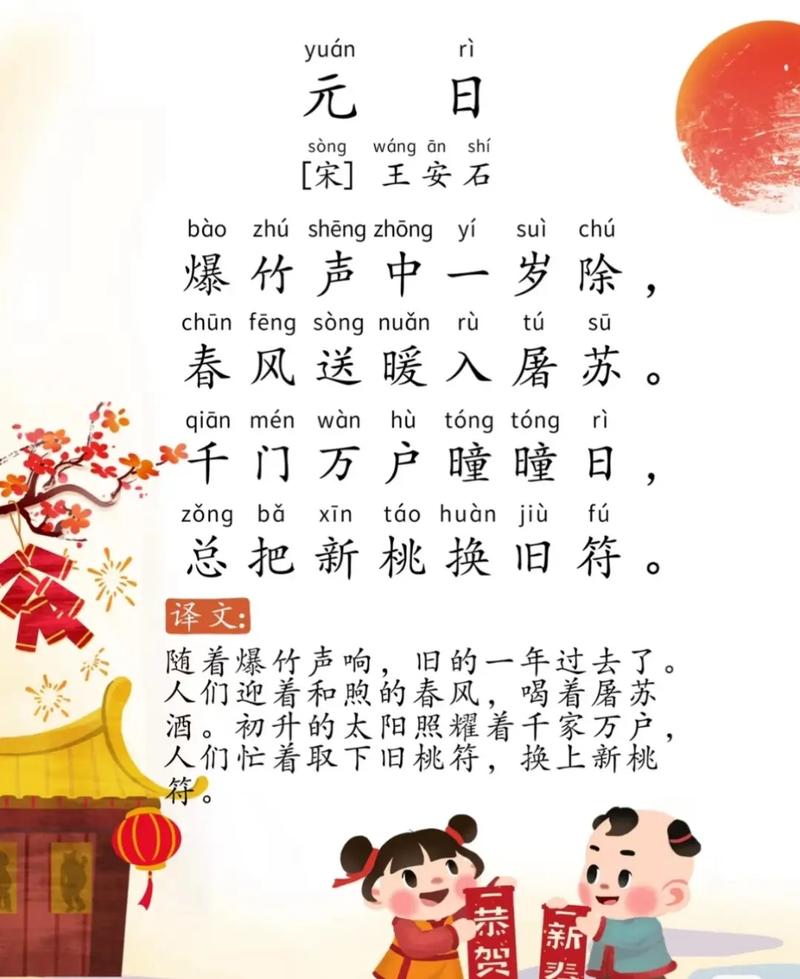 yuán rì
元 日
sòng wáng ān shí
[宋] 王安石
bào zhú shēng zhōng yí suì chú
爆竹声中一岁除，
chūn fēng sòng nuǎn rù tú sū
春风送暖入屠苏。
qiān mén wàn hù tóng tóng rì
千门万户曈曈日，
zǒng bǎ xīn táo huàn jiù fú
总把新桃换旧符。
译文:
随着爆竹声响，旧的一年过去了。
人们迎着和煦的春风，喝着屠苏
酒。初升的太阳照耀着千家万户，
人们忙着取下旧桃符，换上新桃
符。
恭贺
新春